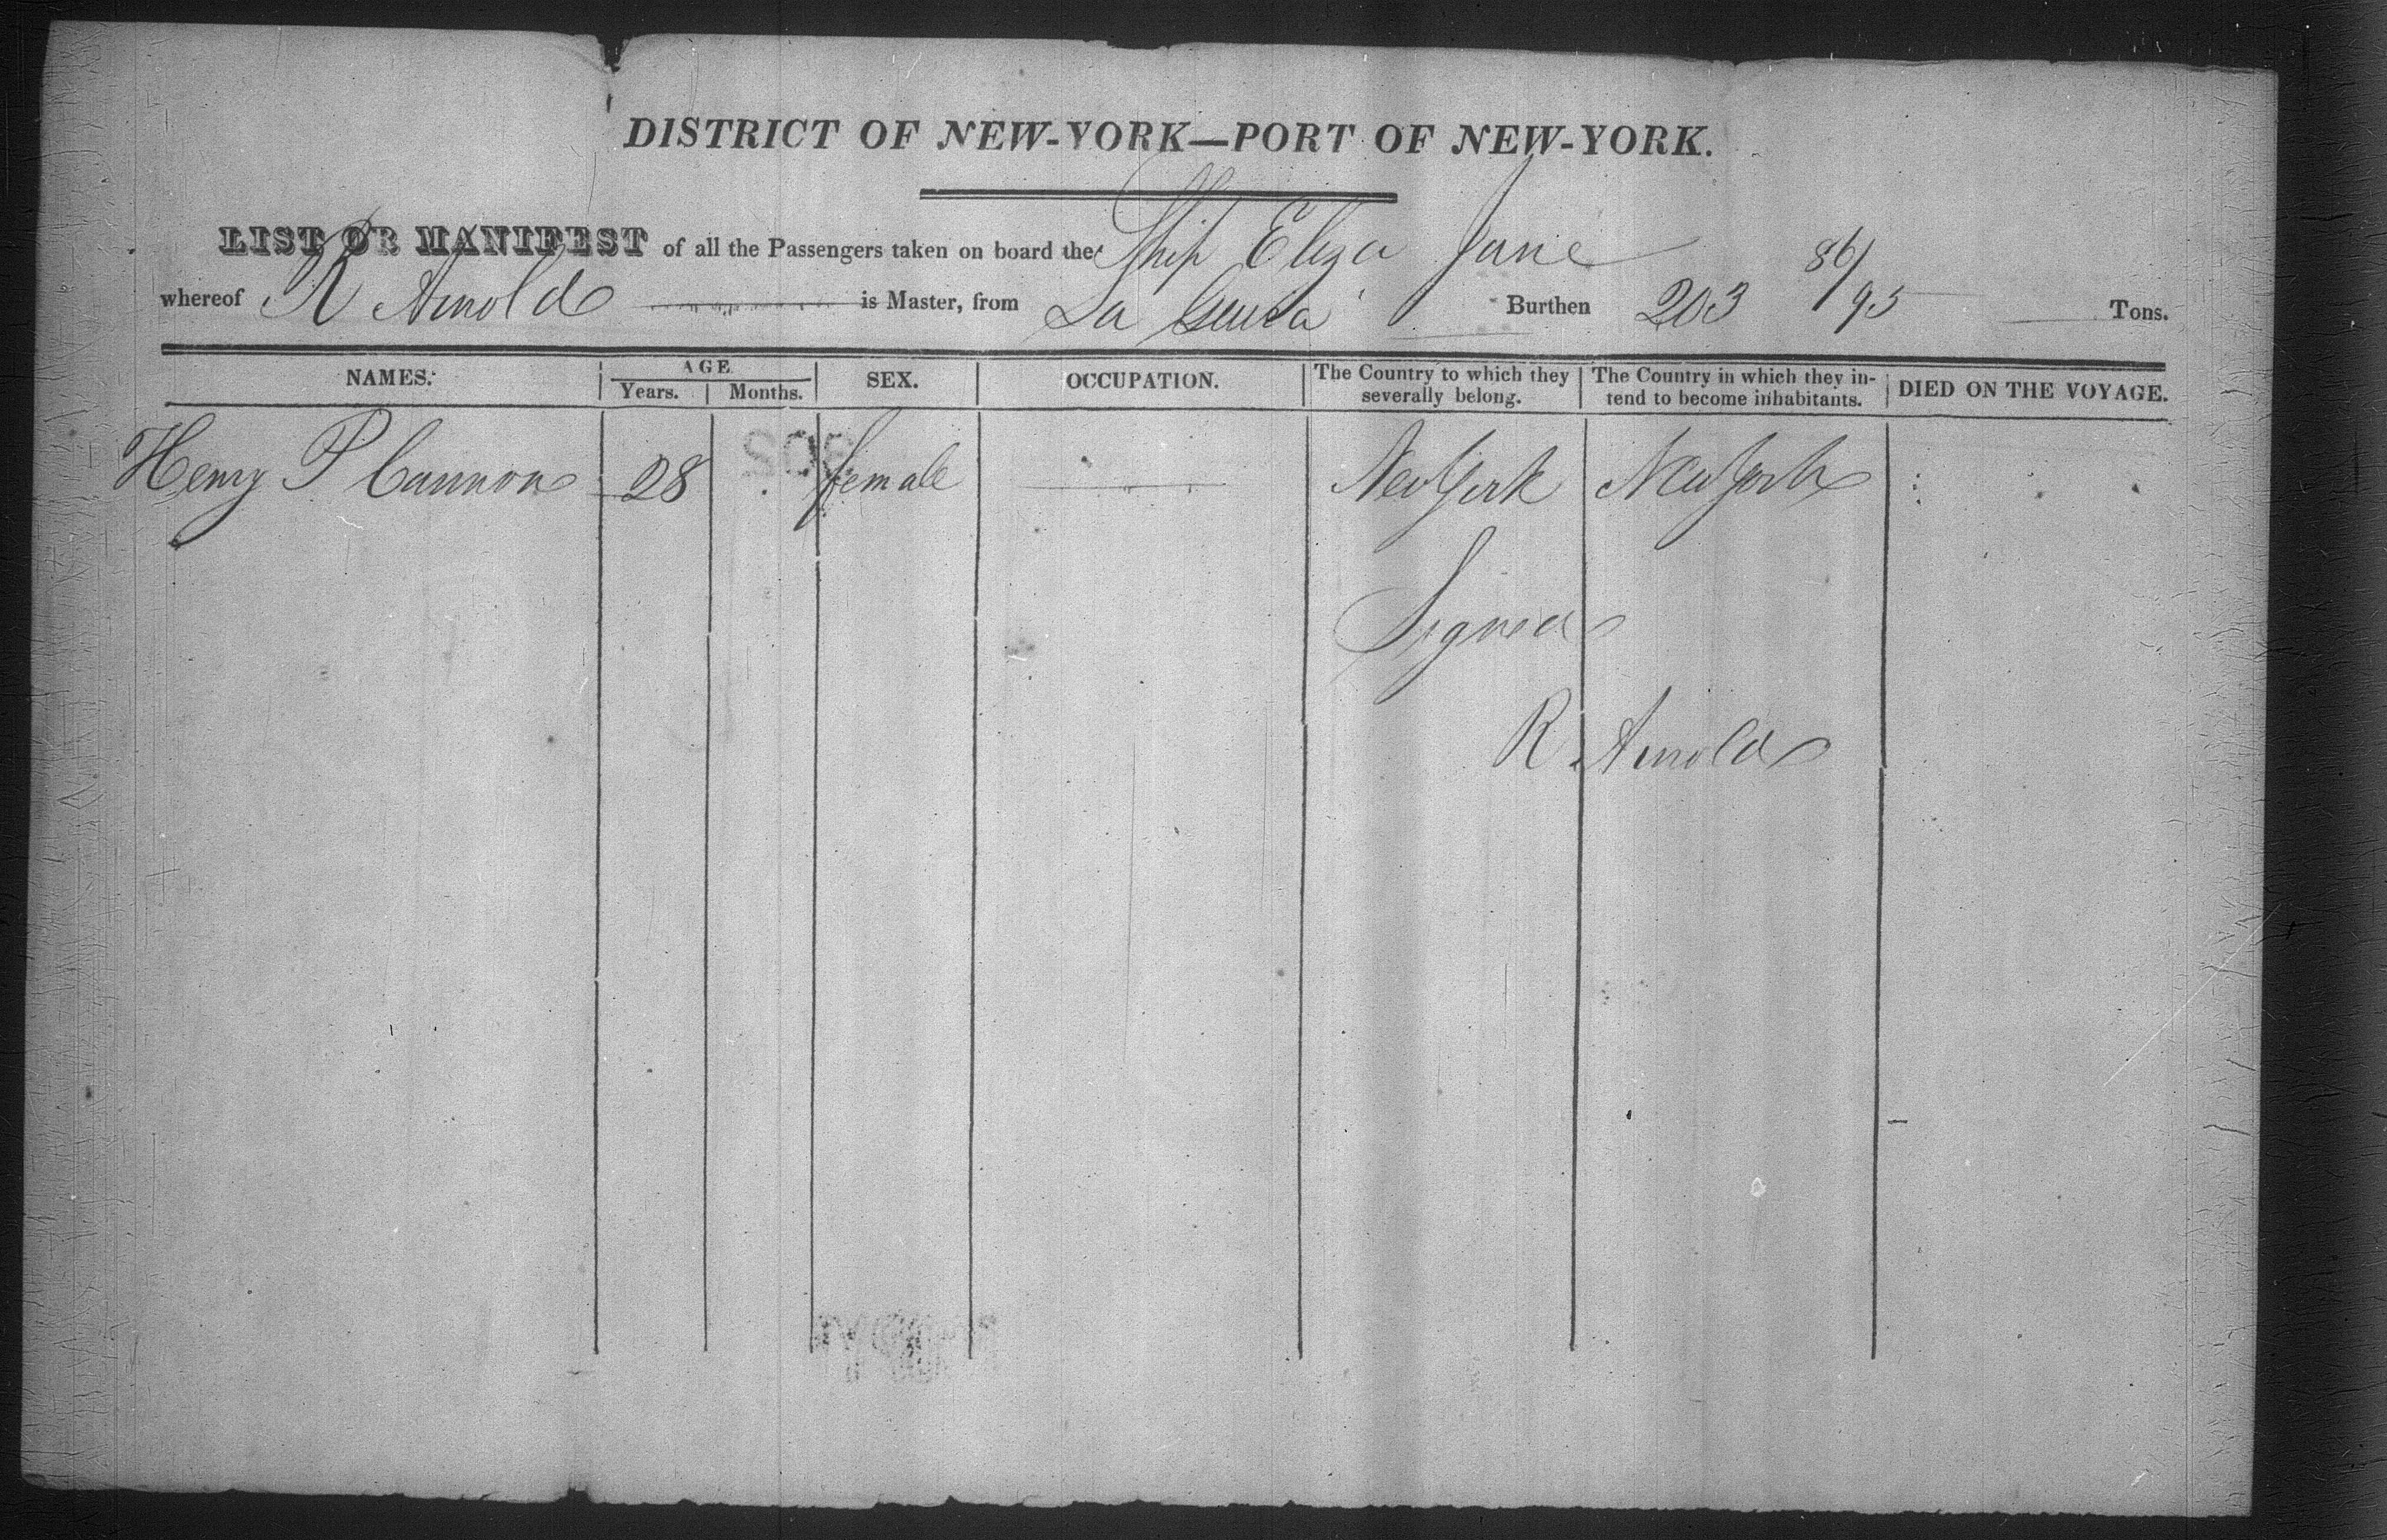 DISTRICT OF NEW-YORK—PORT OF NEW-YORK.
LIST OR MANIFEST of all the Passengers taken on board the Ship Eliza Jane
whereof R Arnold is Master, from La Guira Burthen 203 86/95 Tons.
NAMES. AGE SEX. OCCUPATION. The Country to which they severally belong. The Country in which they intend to become inhabitants. DIED ON THE VOYAGE.
Years. Months.
Henry P Cannon 28 female New York New York
Signed
R Arnold